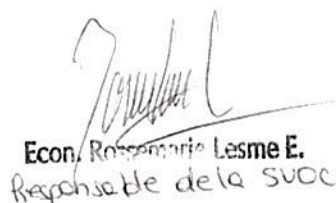 Econ. Rossemarie Lesme E.
Responsable de la SUOC